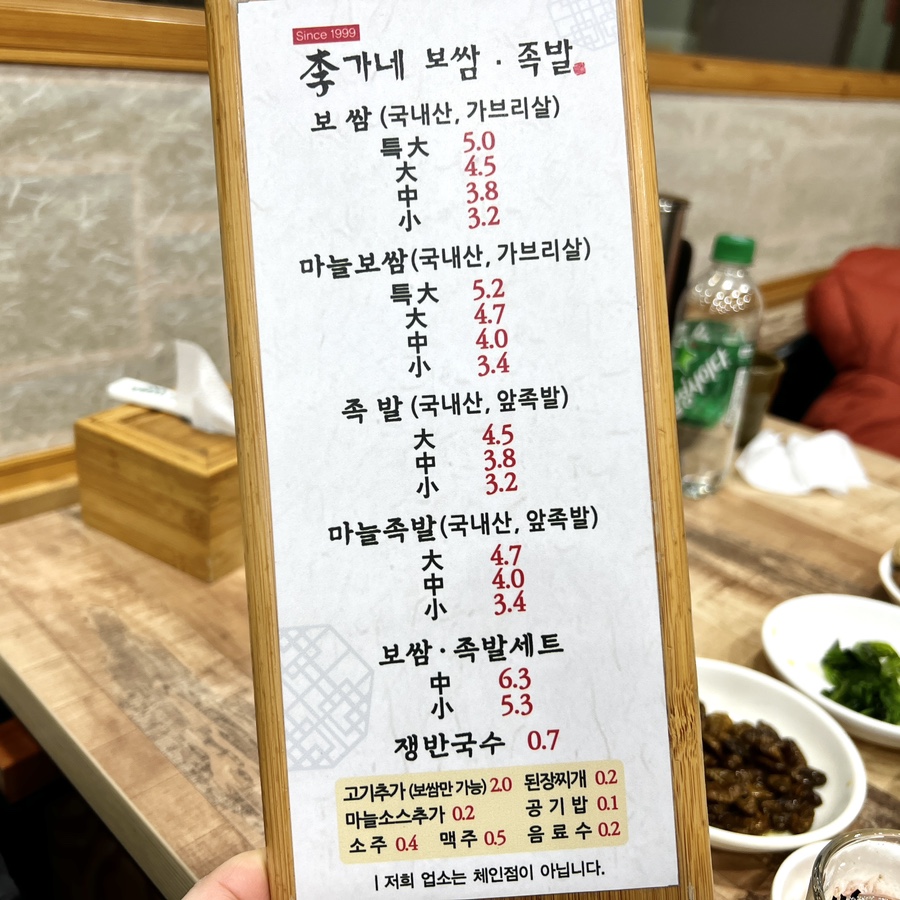 Since 1999
李가네 보쌈 · 족발
보 쌈 (국내산, 가브리살)
특大 5.0
大 4.5
中 3.8
小 3.2
마늘보쌈(국내산, 가브리살)
특大 5.2
大 4.7
中 4.0
小 3.4
족 발 (국내산, 앞족발)
大 4.5
中 3.8
小 3.2
마늘족발(국내산, 앞족발)
大 4.7
中 4.0
小 3.4
보쌈 · 족발세트
中 6.3
小 5.3
쟁반국수 0.7
고기추가 (보쌈만 가능) 2.0 된장찌개 0.2
마늘소스추가 0.2 공 기 밥 0.1
소 주 0.4 맥 주 0.5 음 료 수 0.2
| 저희 업소는 체인점이 아닙니다.